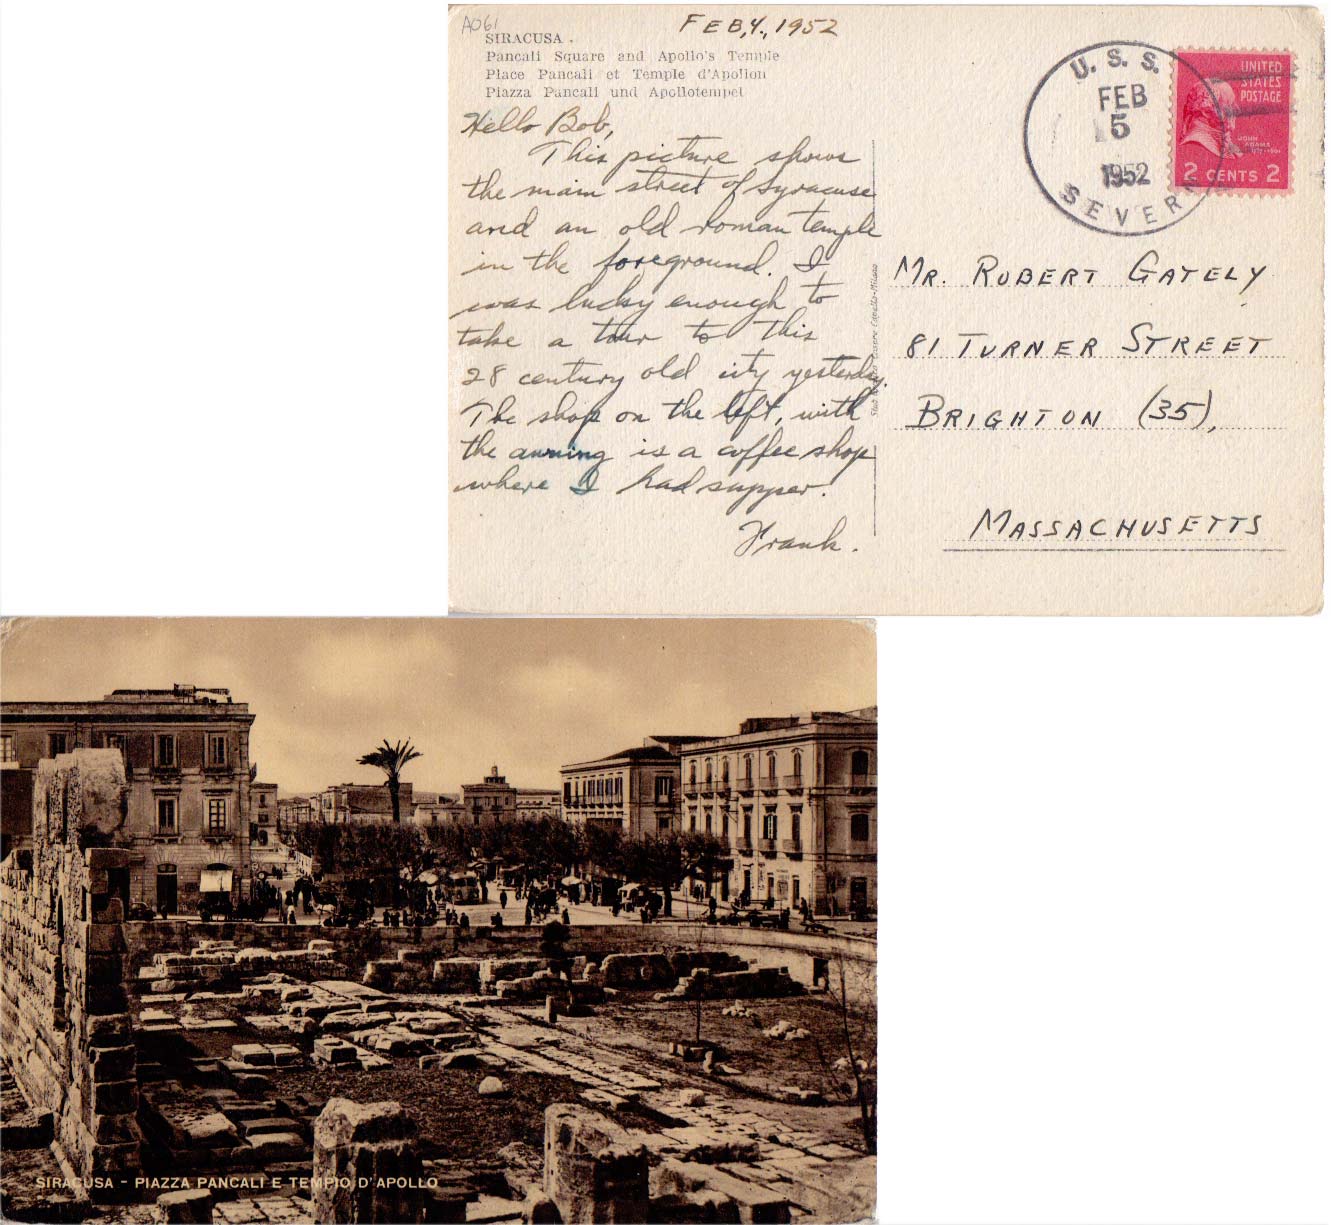 A061
FEB, 4., 1952
SIRACUSA .
Pancali Square and Apollo's Temple
Place Pancali et Temple d'Apollon
Piazza Pancali und Apollotempel
Hello Bob,
This picture shows
the main street of Syracuse
and an old roman temple
in the foreground. I
was lucky enough to
take a tour to this
28 century old city yesterday.
The shop on the left, with
the awning is a coffee shop
where I had supper.
Frank.
U. S. S.
FEB
5
1952
SEVERN
UNITED
STATES
POSTAGE
JOHN
ADAMS
2 CENTS 2
MR. ROBERT GATELY
81 TURNER STREET
BRIGHTON (35),
MASSACHUSETTS
SIRACUSA - PIAZZA PANCALI E TEMPIO D'APOLLO